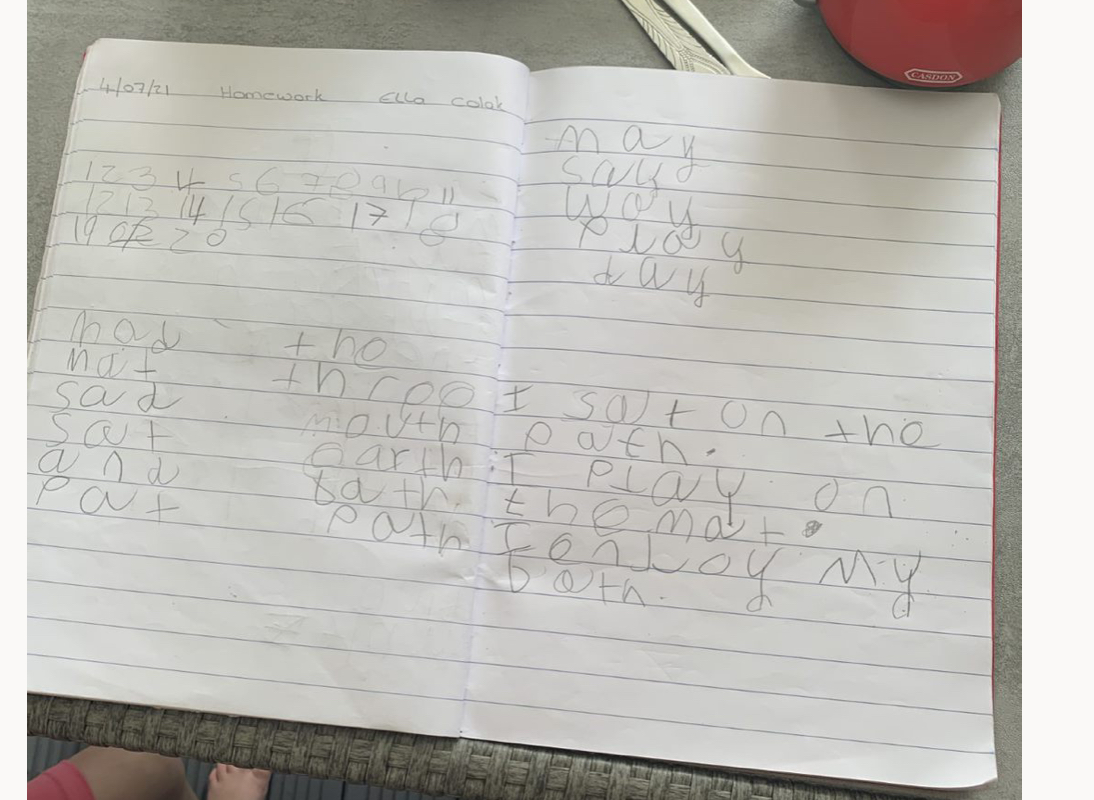 4/07/21 Homework Ella Colak
1 2 3 4 5 6 7 8 9 10 11
12 13 14 15 16 17 18
19 20
had
mat
sad
sat
and
pat
the
three
mouth
earth
bath
path
may
say
way
play
day
I sat on the
path.
I play on
the mat.
I enjoy my
bath.
CASDON